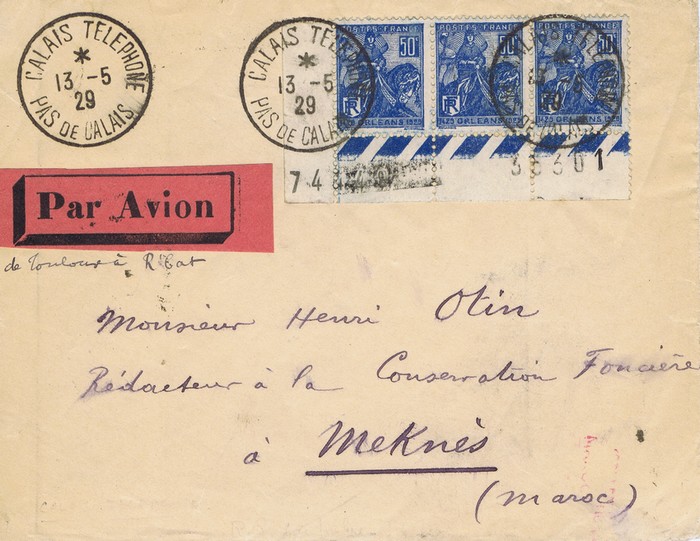 CALAIS TELEPHONE
13 -5
29
PAS DE CALAIS
CALAIS TELEPHONE
13 -5
29
PAS DE CALAIS
POSTES FRANCE
50c
RF
ORLEANS
POSTES-FRANCE
50c
RF
1429 ORLEANS 1929
50c
RF
1429 ORLEANS 1929
74
33301
Par Avion
de Toulouse à Rabat
Monsieur Henri Otin
Rédacteur à la Conservation Foncière
à Meknès
(Maroc)